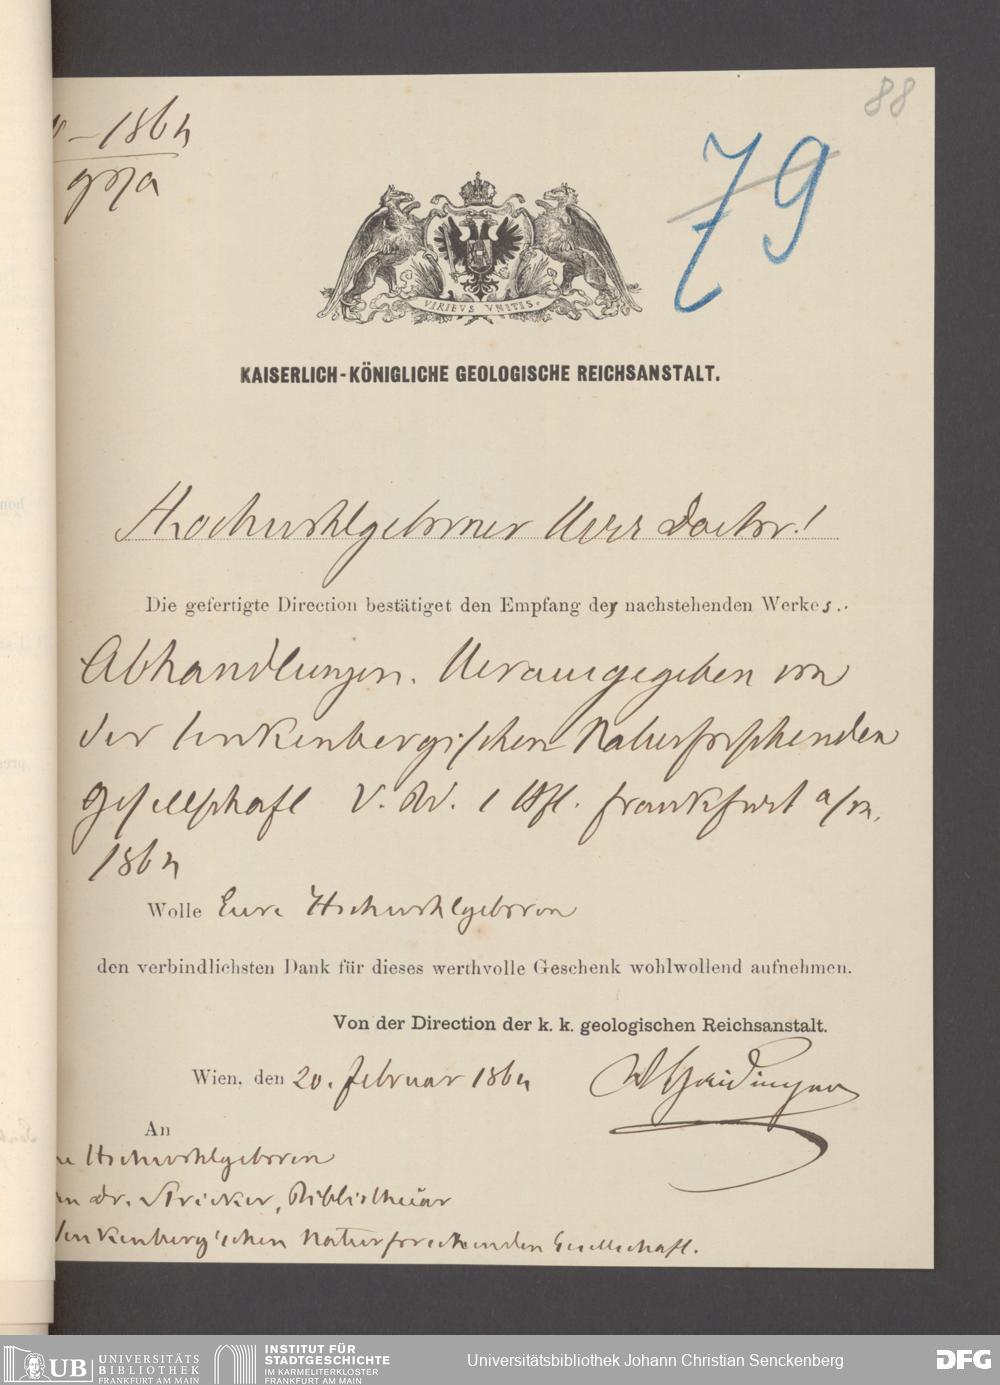 88
– 1864
79
VIRIBVS VNITIS.
KAISERLICH-KÖNIGLICHE GEOLOGISCHE REICHSANSTALT.
Hochwohlgeborner Herr Doctor!
Die gefertigte Direction bestätiget den Empfang des nachstehenden Werkes..
Abhandlungen. Herausgegeben von
der Senkenbergischen Naturforschenden
Gesellschaft V. Bd. 1 Hft. Frankfurt a/m.
1864
Wolle Eure Hochwohlgeboren
den verbindlichsten Dank für dieses werthvolle Geschenk wohlwollend aufnehmen.
Von der Direction der k. k. geologischen Reichsanstalt.
Wien, den 20. Februar 1864
W Haidinger
An
Hochwohlgeboren
Dr. Stricker, Bibliothekar
Senkenberg'schen Naturforschenden Gesellschaft.
UB UNIVERSITÄTS
BIBLIOTHEK
FRANKFURT AM MAIN
INSTITUT FÜR
STADTGESCHICHTE
IM KARMELITERKLOSTER
FRANKFURT AM MAIN
Universitätsbibliothek Johann Christian Senckenberg
DFG